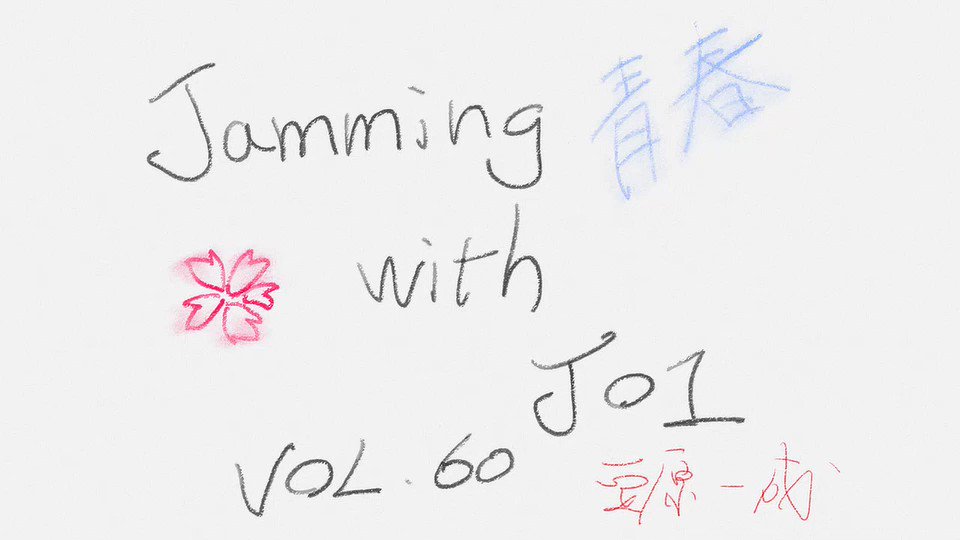 Jamming 青春
with
JO1
VOL.60 豆原一成